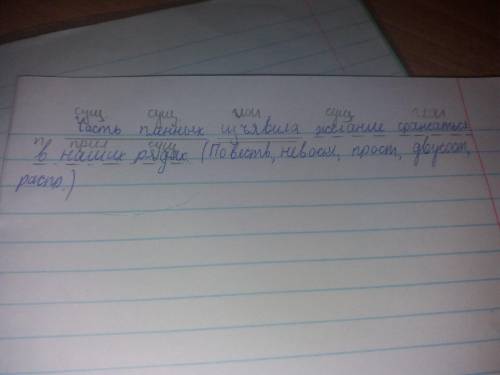 сущ сущ глаг сущ глаг
Часть пленных изъявила желание сражаться
п прил сущ
в наших рядах. (Повеств, невоскл, прост, двусост,
распр.)